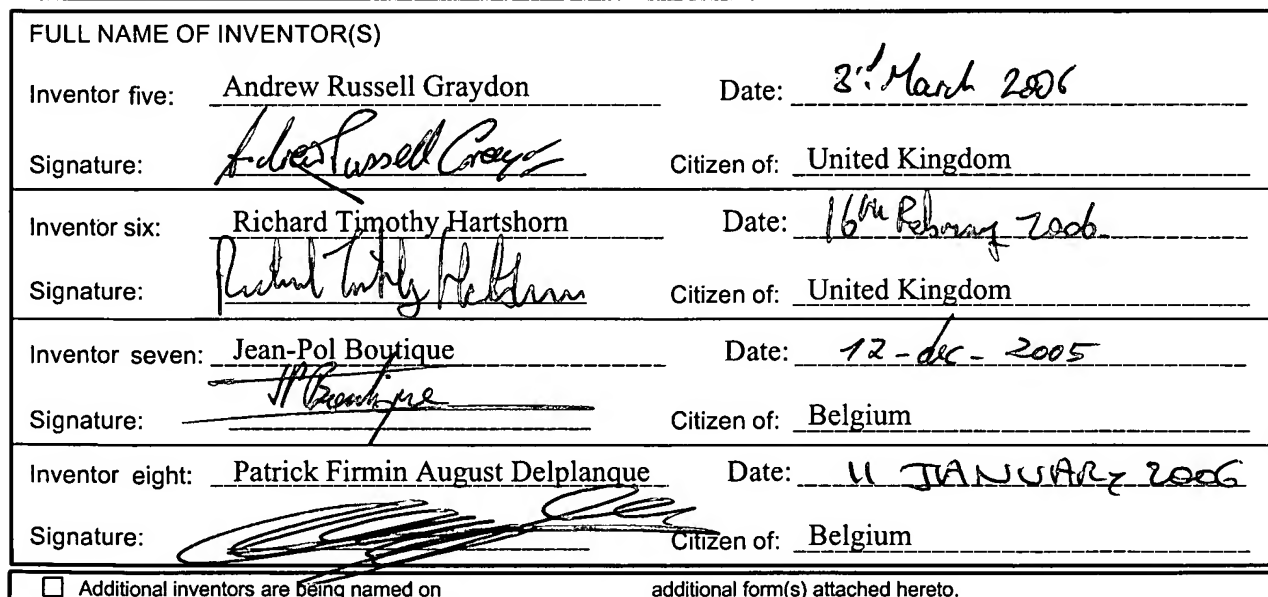 FULL NAME OF INVENTOR(S)
Inventor five: Andrew Russell Graydon Date: 3rd March 2006
Signature: Andrew Russell Graydon Citizen of: United Kingdom
Inventor six: Richard Timothy Hartshorn Date: 16th February 2006
Signature: Richard Timothy Hartshorn Citizen of: United Kingdom
Inventor seven: Jean-Pol Boutique Date: 12-dec-2005
Signature: JPBoutique Citizen of: Belgium
Inventor eight: Patrick Firmin August Delplanque Date: 11 JANUARY 2006
Signature: Citizen of: Belgium
☐ Additional inventors are being named on additional form(s) attached hereto.